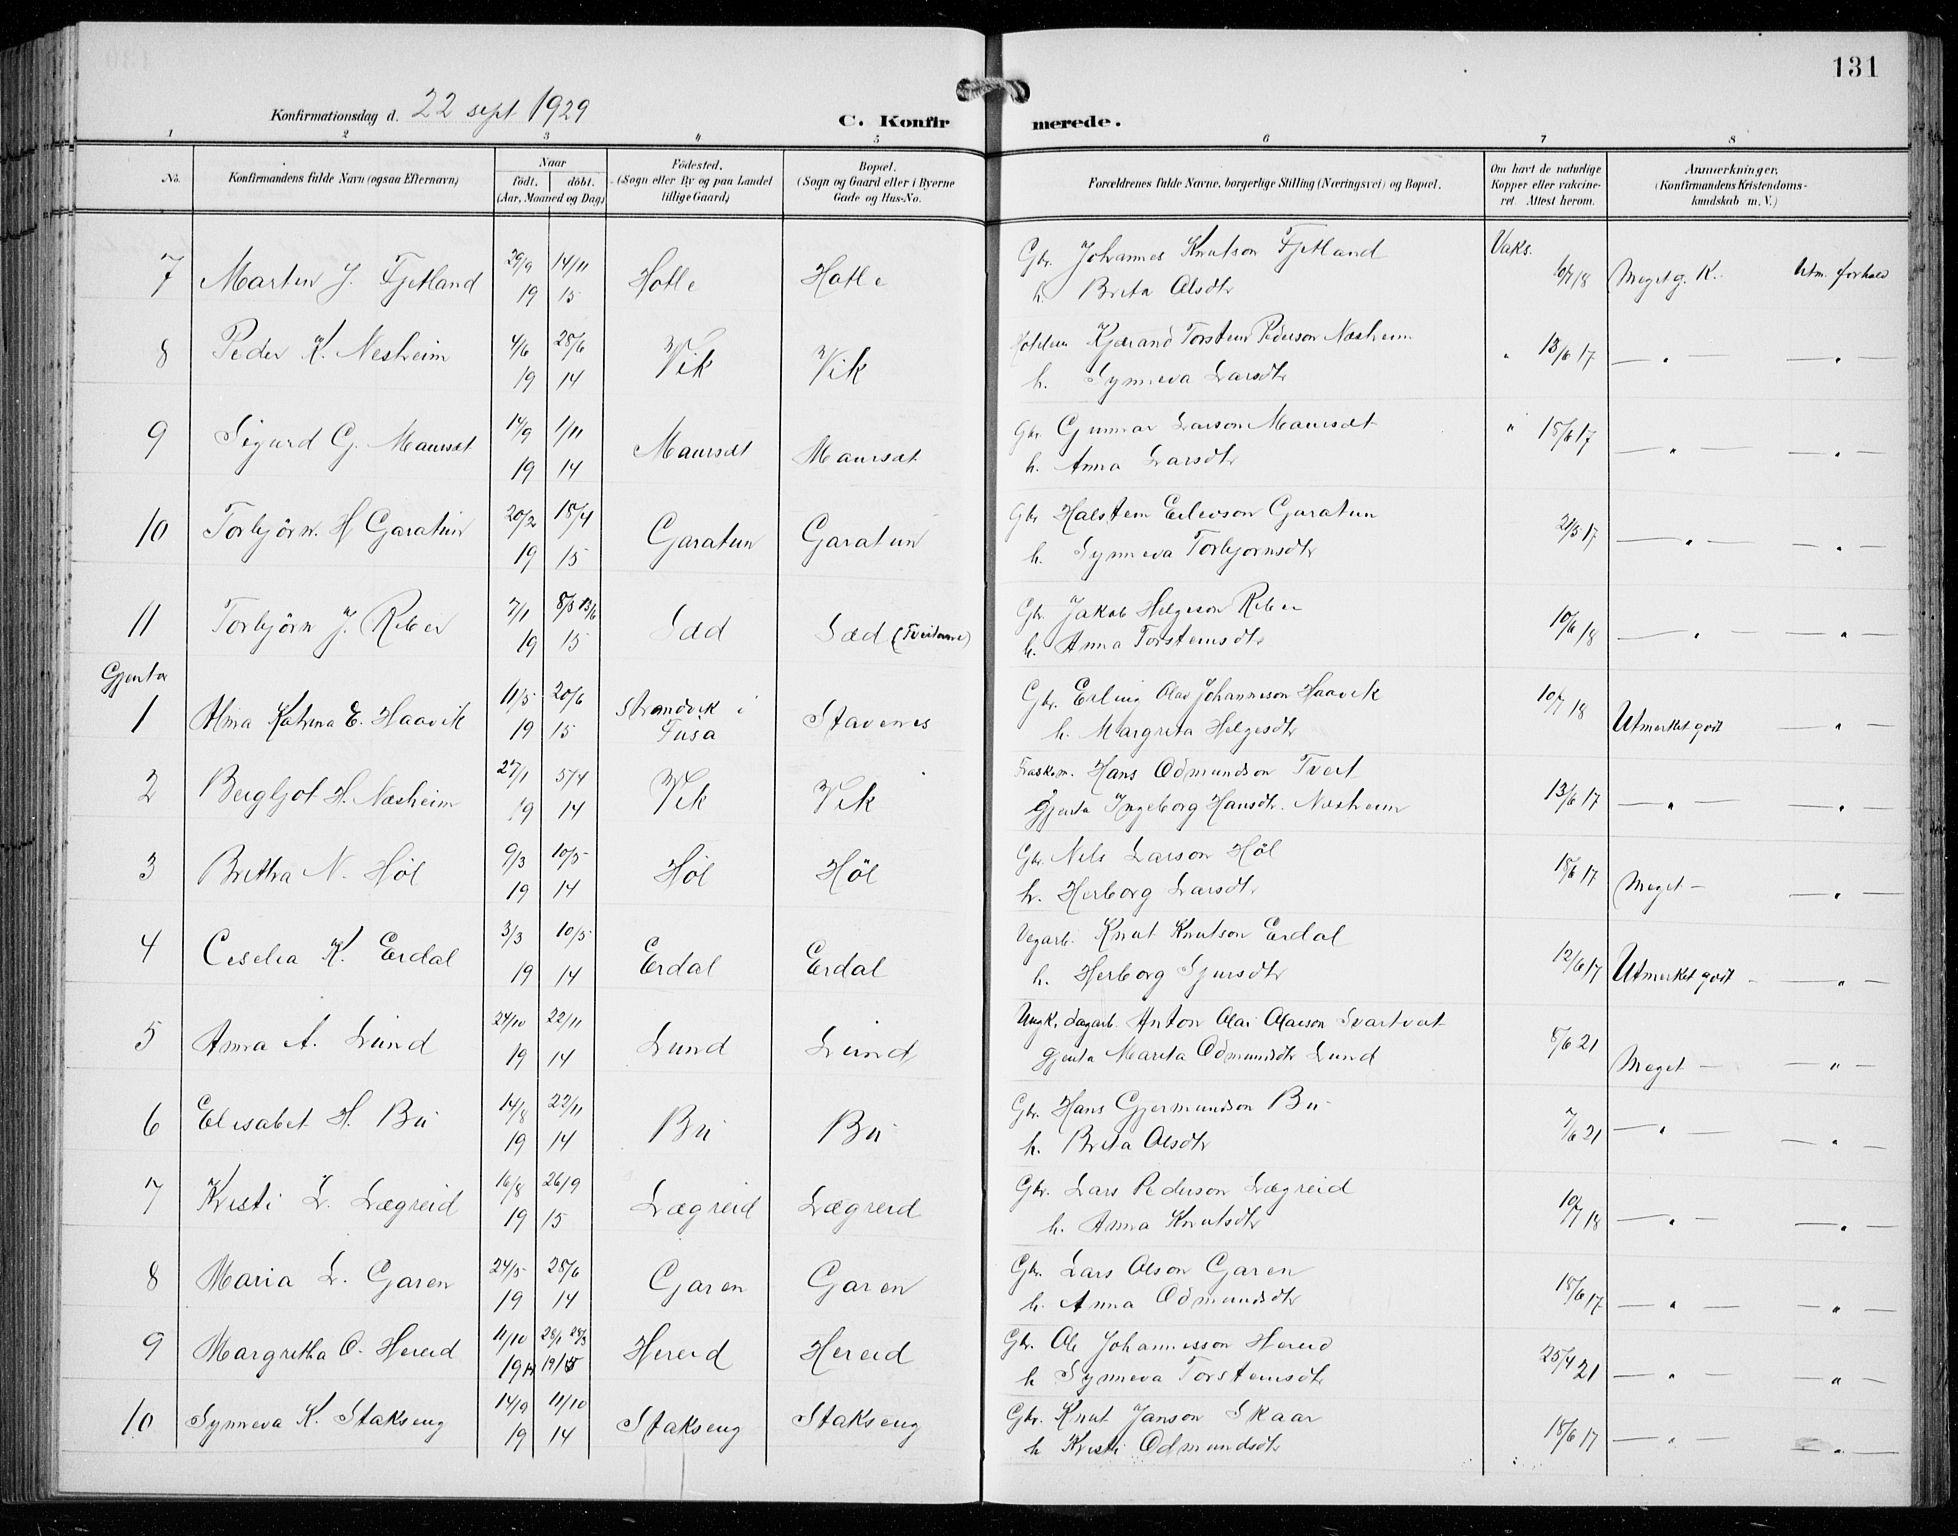 131
Konfirmationsdag d. 22 sept 1929
C. Konfirmerede.
1 2 3 4 5 6 7 8
No.
Konfirmandens fulde Navn (ogsaa Efternavn)
Naar
født. døbt.
(Aar, Maaned og Dag)
Fødested.
(Sogn eller By og paa Landet
tillige Gaard)
Bopæl.
(Sogn og Gaard eller i Byerne
Gade og Hus-No.
Forældrenes fulde Navne, borgerlige Stilling (Næringsvei) og Bopæl.
Om havt de naturlige
Kopper eller vakcine-
ret Attest herom.
Anmerkninger,
(Konfirmandens Kristendoms-
kundskab m. V.)
7 Marten J. Fjetland 29/9 14/11 19 15 Hotle Hotle
Gbr. Johannes Knutson Fjetland Vaks. 10/7 18 Meget g. K. Utm. forhold
h. Brita Olsdtr
8 Peder K. Nesheim 4/6 28/6 19 14 Vik Vik
Kjærand Torstein Pederson Næsheim " 13/6 17 — " — — " —
h. Synneva Larsdtr
9 Sigurd G. Maursæt 14/9 1/11 19 14 Maursæt Maursæt
Gbr. Gunnar Larson Maursæt " 15/6 17 — " — — " —
h. Anna Larsdtr
10 Torbjörn. H Garatun 20/2 18/4 19 15 Garatun Garatun
Gbr Halstein Eilevson Garatun 21/5 17 — " — — " —
h. Synneva Torbjornsdtr
11 Torbjörn J. Reber 7/1 8/3 13/6 19 15 Sæd Sæd (Tveitane)
Gbr. Jakob Helgeson Reber 10/6 18 — " — — " —
h. Anna Torsteinsdtr
Gjentor
1 Alma Katrina E. Haavik 11/5 20/6 19 15 Strandvik i Fusa Stavenes
Gbr. Erling Olav Johanneson Haavik 10/7 18 Utmerket godt — " —
h. Margreta Helgesdtr
2 Bergljot H. Næsheim 27/1 5/4 19 14 Vik Vik
Frask.m. Hans Odmundson Tveit 13/6 17 — " — — " —
gjenta Ingeborg Hansdtr. Næsheim
3 Britha N. Høl 9/3 10/5 19 14 Høl Höl
Gbr. Nils Larson Höl 18/6 17 Meget — — " —
h. Herborg Larsdtr
4 Ceselia K. Erdal 3/3 10/5 19 14 Erdal Erdal
Vegarb. Knut Knutson Erdal 12/6 17 Utmerket godt — — " —
h. Herborg Sjursdtr
5 Anna A. Lund 24/10 22/11 19 14 Lund Lund
Ungk. dagarb. Anton Olai Olavson Svartveit 8/6 21 Meget — — " —
gjenta Marita Odmundsdtr Lund
6 Elisabet H. Bu 14/8 22/11 19 14 Bu Bu
Gbr. Hans Gjermundson Bu 7/6 21 — " — — " —
h. Brita Olsdtr
7 Kristi L. Lægreid 16/8 26/9 19 15 Lægreid Lægreid
Gbr. Lars Pederson Lægreid 10/7 18 — " — — " —
h. Anna Knutsdtr
8 Maria L. Garen 24/5 28/6 19 14 Garen Garen
Gbr. Lars Olson Garen 18/6 17 — " — — " —
h. Anna Odmundsdtr
9 Margretha O. Hereid 11/10 28/1 28/3 19 14 19 15 Hereid Hereid
Gbr. Ole Johannesson Hereid 25/4 21 — " — — " —
h Synneva Torsteinsdtr
10 Synneva K. Stakseng 14/9 11/10 19 14 Stakseng Stakseng
Gbr. Knut Janson Skaar 18/6 17 — " — — " —
h Kristi Odmundsdtr